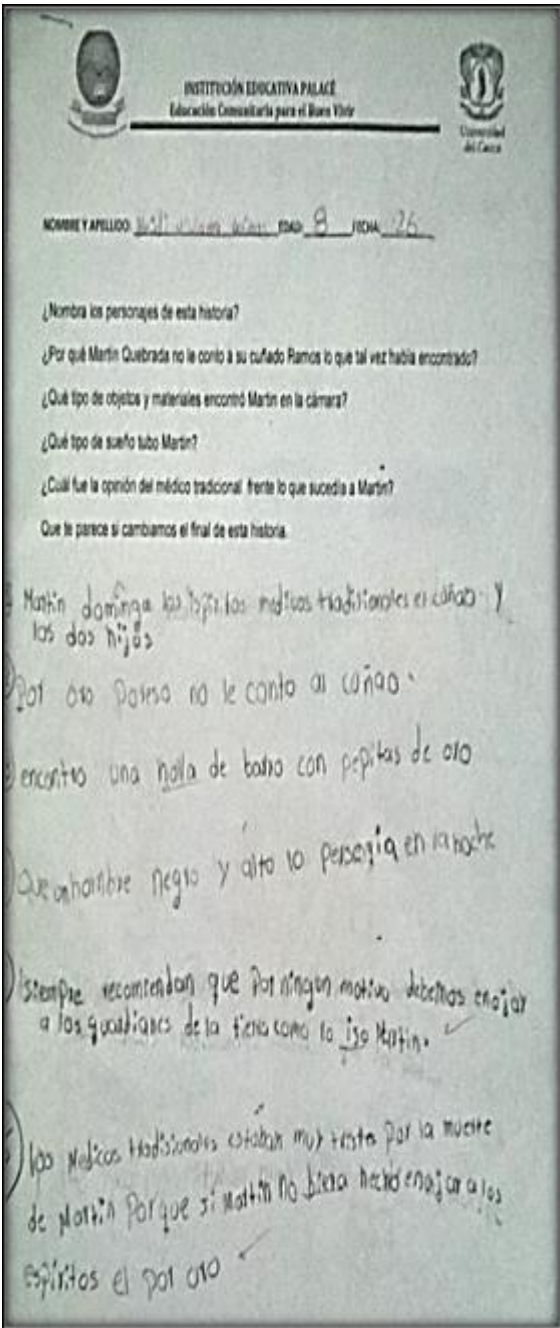 INSTITUCIÓN EDUCATIVA PALACÉ
Educación Comunitaria para el Buen Vivir
Universidad
del Cauca
NOMBRE Y APELLIDO: EDAD: 8 FECHA: 26
¿Nombra los personajes de esta historia?
¿Por qué Martin Quebrada no le conto a su cuñado Ramos lo que tal vez había encontrado?
¿Qué tipo de objetos y materiales encontró Martin en la cámara?
¿Qué tipo de sueño tubo Martin?
¿Cuál fue la opinión del médico tradicional frente lo que sucedía a Martin?
Que te parece si cambiamos el final de esta historia.
Martin dominga los medicos tradisionales el cuñao y
los dos hijos
Por oro poreso no le conto al cuñao.
encontro una holla de barro con pepitas de oro
Que un hombre negro y alto lo persegia en la noche
siempre recomiendan que por ningun motivo debemos enojar
a los guardianes de la tierra como lo iso Martin.
los Medicos tradisionales estaban muy tristes por la muerte
de Martin Porque si Martin no biera hecho enojar a los
espiritos el por oro